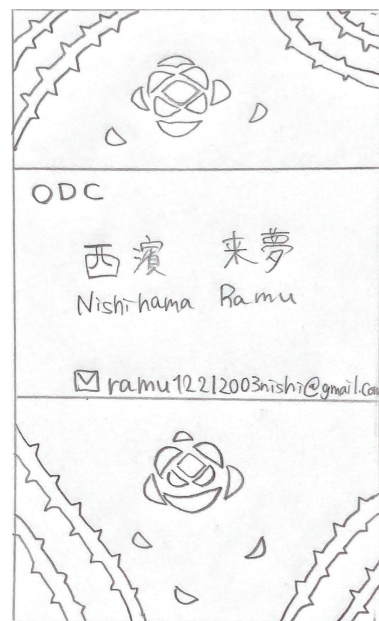 ODC
西濱 来夢
Nishihama Ramu
ramu12212003nishi@gmail.com